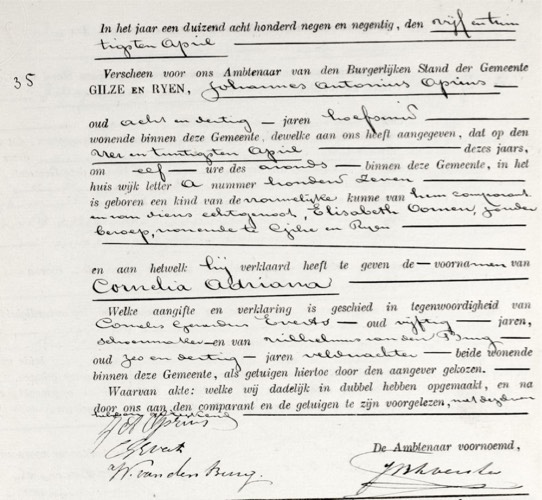 In het jaar een duizend acht honderd negen en negentig, den vijf en twin
tigsten April
35
Verscheen voor ons Ambtenaar van den Burgerlijken Stand der Gemeente
GILZE EN RYEN, Johannes Antonius Oprins
oud acht en dertig jaren hoefsmid
wonende binnen deze Gemeente, dewelke aan ons heeft aangegeven, dat op den
Vier en twintigsten April dezes jaars,
om elf ure des avonds binnen deze Gemeente, in het
huis wijk letter A nummer honderd zeven
is geboren een kind van de vrouwelijke kunne van hem comparant
en van diens echtgenoot, Elisabeth Oomen, zonder
beroep, wonende te Gilze en Ryen
en aan hetwelk hij verklaard heeft te geven de voornamen van
Cornelia Adriana
Welke aangifte en verklaring is geschied in tegenwoordigheid van
Cornelis Gerardus Everts oud vijftig jaren,
schoenmaker en van Wilhelmus van den Burg
oud zes en dertig jaren veldwachter beide wonende
binnen deze Gemeente, als getuigen hiertoe door den aangever gekozen.
Waarvan akte: welke wij dadelijk in dubbel hebben opgemaakt, en na
door ons aan den comparant en de getuigen te zijn voorgelezen, met dezen
Oprins
W. van den Burg.
De Ambtenaar voornoemd,